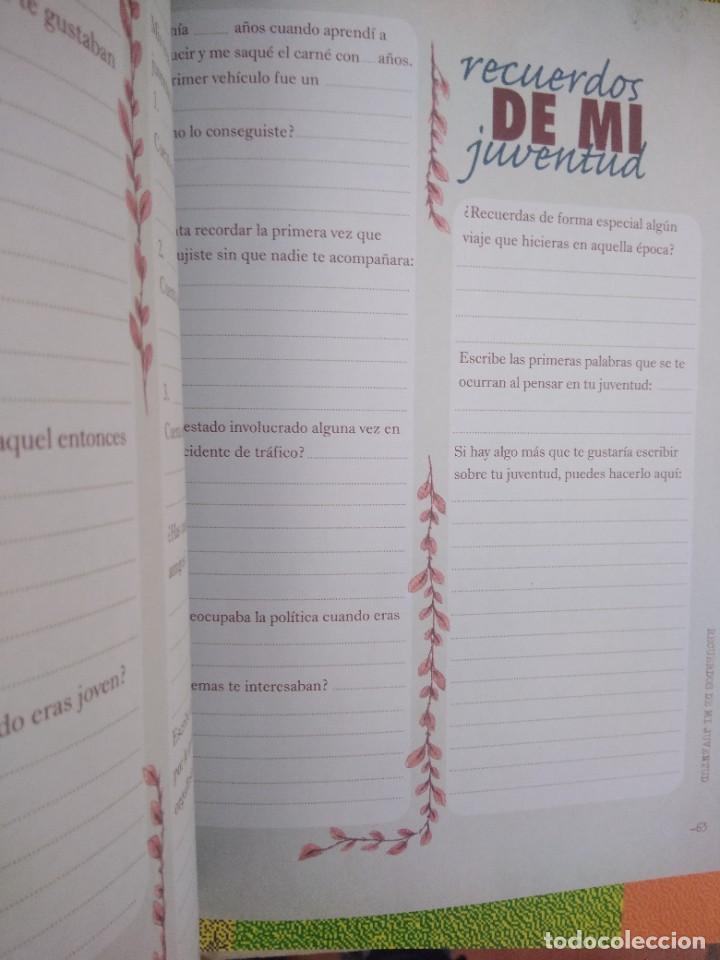 te gustaban
aquel entonces
do eras joven?
1.
2.
3.
años cuando aprendí a
ucir y me saqué el carné con años.
rimer vehículo fue un
no lo conseguiste?
nta recordar la primera vez que
ujiste sin que nadie te acompañara:
estado involucrado alguna vez en
cidente de tráfico?
eocupaba la política cuando eras
emas te interesaban?
recuerdos
DE MI
juventud
¿Recuerdas de forma especial algún
viaje que hicieras en aquella época?
Escribe las primeras palabras que se te
ocurran al pensar en tu juventud:
Si hay algo más que te gustaría escribir
sobre tu juventud, puedes hacerlo aquí:
RECUERDOS DE MI JUVENTUD
63
todocoleccion